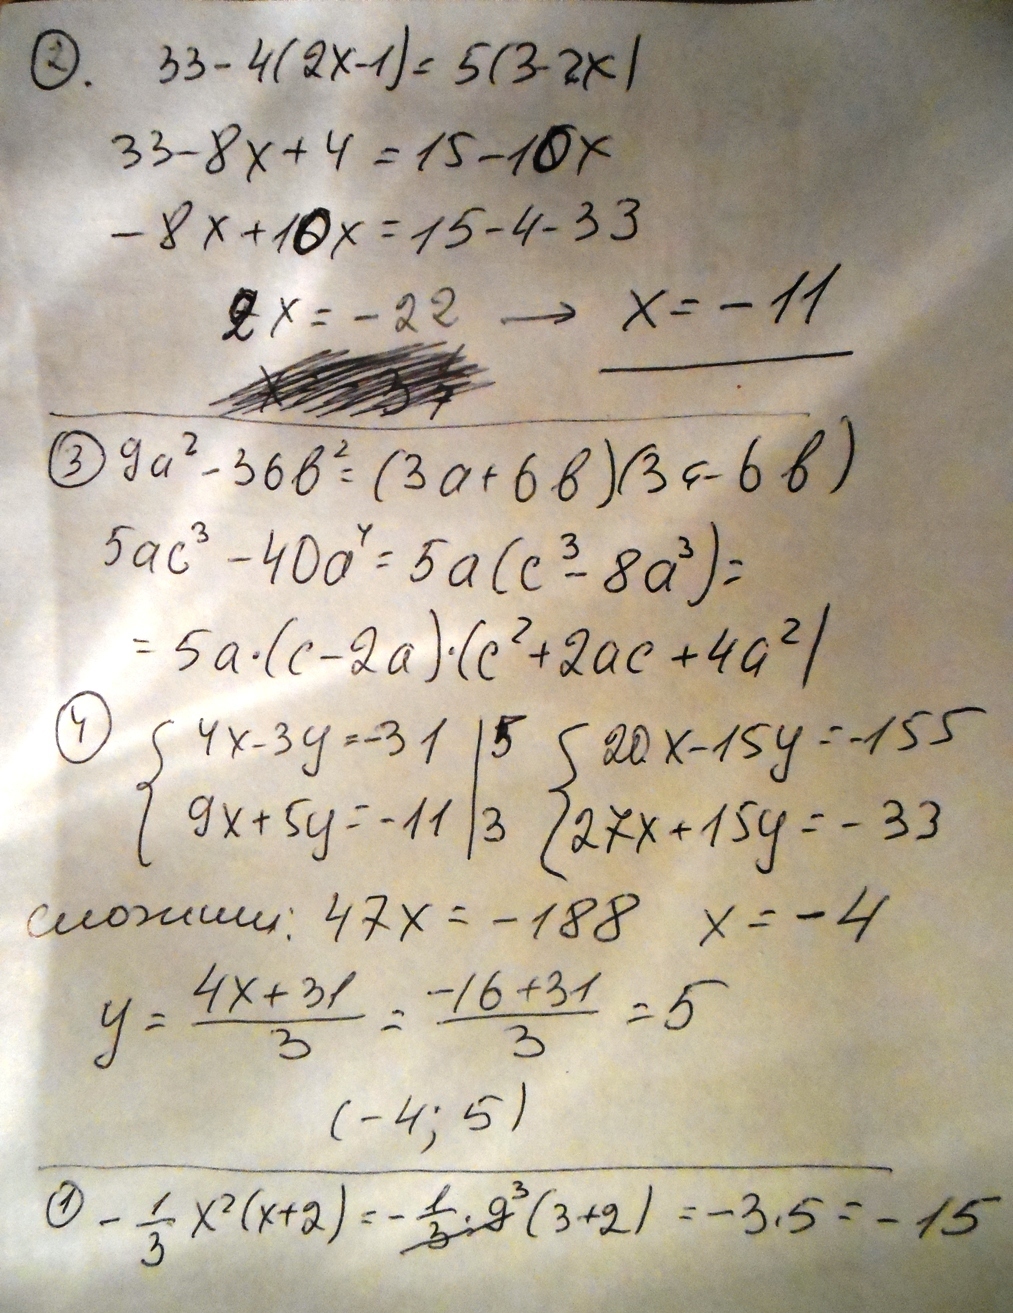 ②. 33-4(2x-1)=5(3-2x)
33-8x+4=15-10x
-8x+10x=15-4-33
2x=-22 → x=-11
③ 9a²-36b²=(3a+6b)(3a-6b)
5ac³-40a⁴=5a(c³-8a³)=
=5a·(c-2a)·(c²+2ac+4a²)
④ {4x-3y=-31 |5 {20x-15y=-155
9x+5y=-11 |3 27x+15y=-33
сложим: 47x=-188 x=-4
y=(4x+31)/3=(-16+31)/3=5
(-4; 5)
① -1/3 x²(x+2)=-1/3·9³(3+2)=-3·5=-15